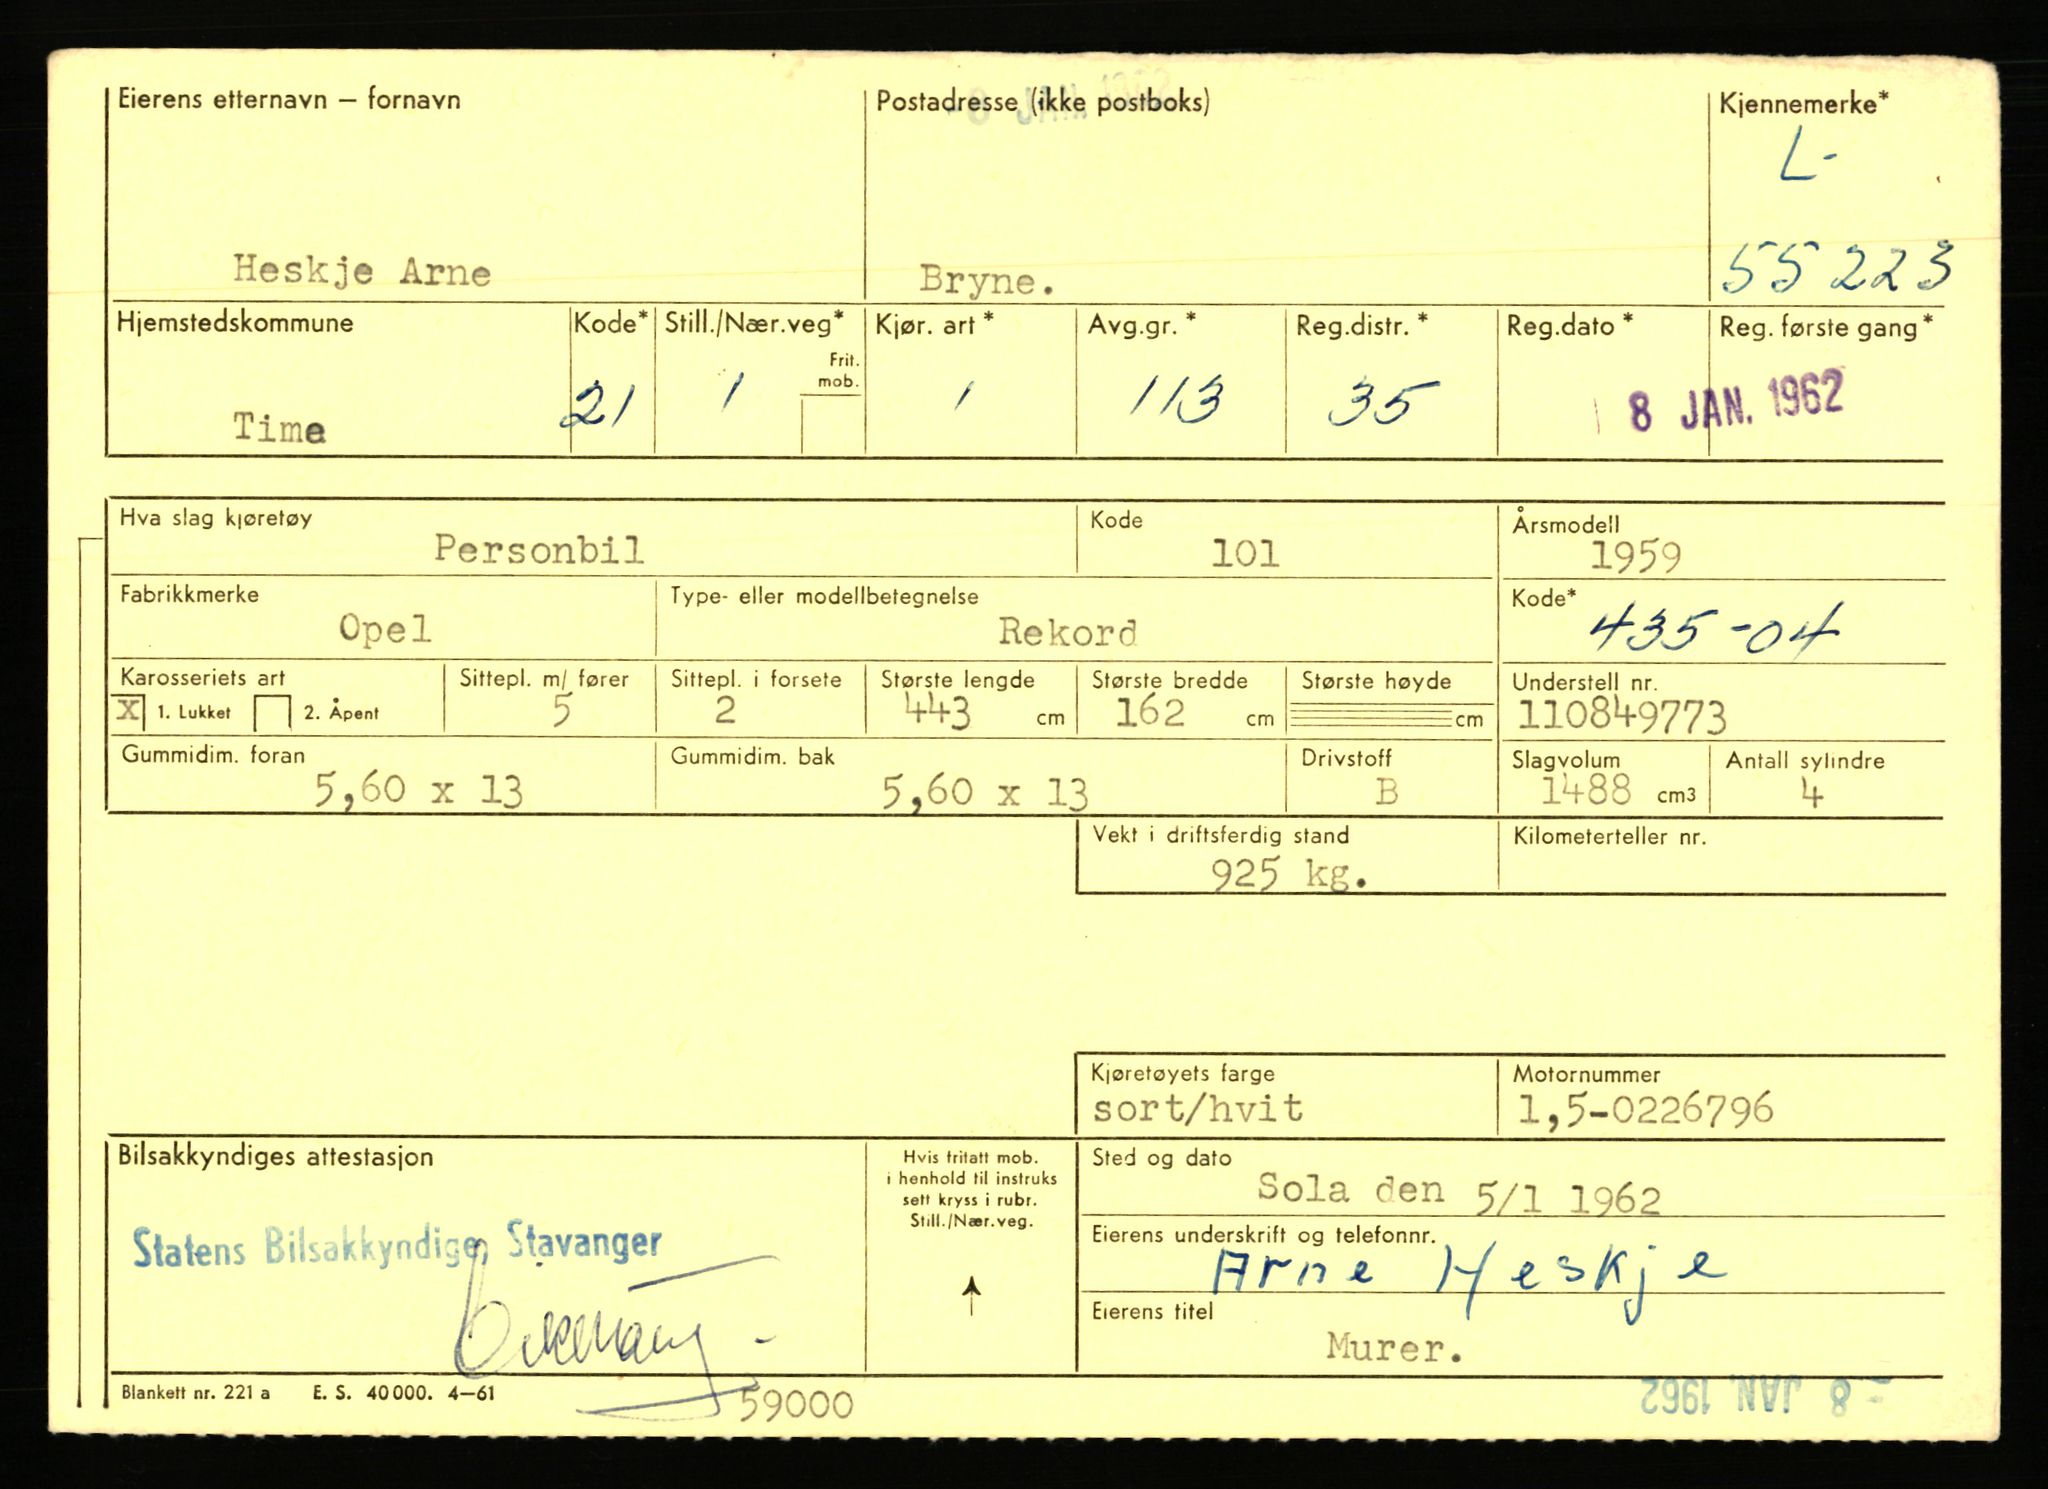 Eierens etternavn – fornavn
Postadresse (ikke postboks)
Kjennemerke*
L-
Heskje Arne
Bryne.
55223
Hjemstedskommune
Kode*
Still./Nær.veg*
Kjør. art *
Avg.gr. *
Reg.distr. *
Reg.dato *
Reg. første gang*
Frit.
mob.
Time
21
1
1
113
35
8 JAN. 1962
Hva slag kjøretøy
Personbil
Kode
101
Årsmodell
1959
Fabrikkmerke
Opel
Type- eller modellbetegnelse
Rekord
Kode*
435-04
Karosseriets art
X 1. Lukket 2. Åpent
Sittepl. m/ fører
5
Sittepl. i forsete
2
Største lengde
443 cm
Største bredde
162 cm
Største høyde
cm
Understell nr.
110849773
Gummidim. foran
5,60 x 13
Gummidim. bak
5,60 x 13
Drivstoff
B
Slagvolum
1488 cm3
Antall sylindre
4
Vekt i driftsferdig stand
925 kg.
Kilometerteller nr.
Kjøretøyets farge
sort/hvit
Motornummer
1,5-0226796
Bilsakkyndiges attestasjon
Statens Bilsakkyndige, Stavanger
Hvis fritatt mob.
i henhold til instruks
sett kryss i rubr.
Still./Nær.veg.
Sted og dato
Sola den 5/1 1962
Eierens underskrift og telefonnr.
Arne Heskje
Eierens titel
Murer.
Blankett nr. 221 a E. S. 40 000. 4–61
59000
- 8 JAN. 1962